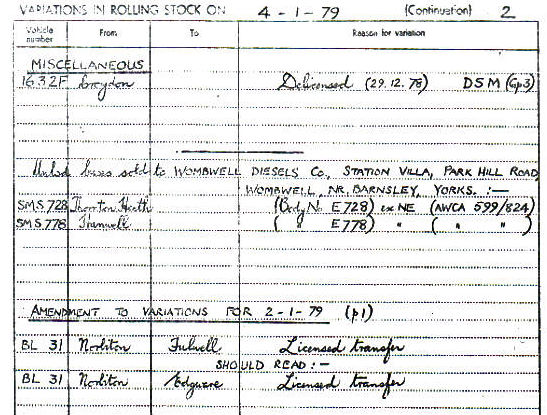 VARIATIONS IN ROLLING STOCK ON 4-1-79 (Continuation) 2
Vehicle number From To Reason for variation
MISCELLANEOUS
1632F Croydon Delicensed (29.12.78) DSM (Gp3)
buses sold to WOMBWELL DIESELS Co., STATION VILLA, PARK HILL ROAD,
WOMBWELL, NR. BARNSLEY, YORKS. :—
SMS 728 Thornton Heath (Body No E728) ex NE (AWCA 599/824)
SMS 778 Hanwell ( " E778) " ( " " )
AMENDMENT TO VARIATIONS FOR 2-1-79 (p1)
BL 31 Norbiton Fulwell Licensed transfer
SHOULD READ :—
BL 31 Norbiton Edgware Licensed transfer